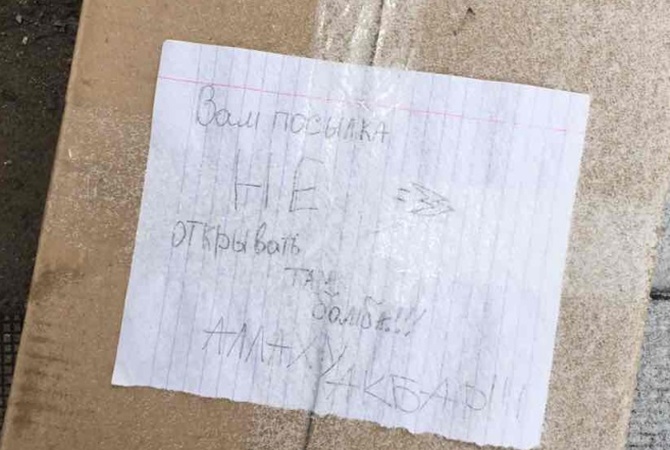 Вам посылка
НЕ
открывать
там
бомба!!!
АЛЛАХУ АКБАР!!!